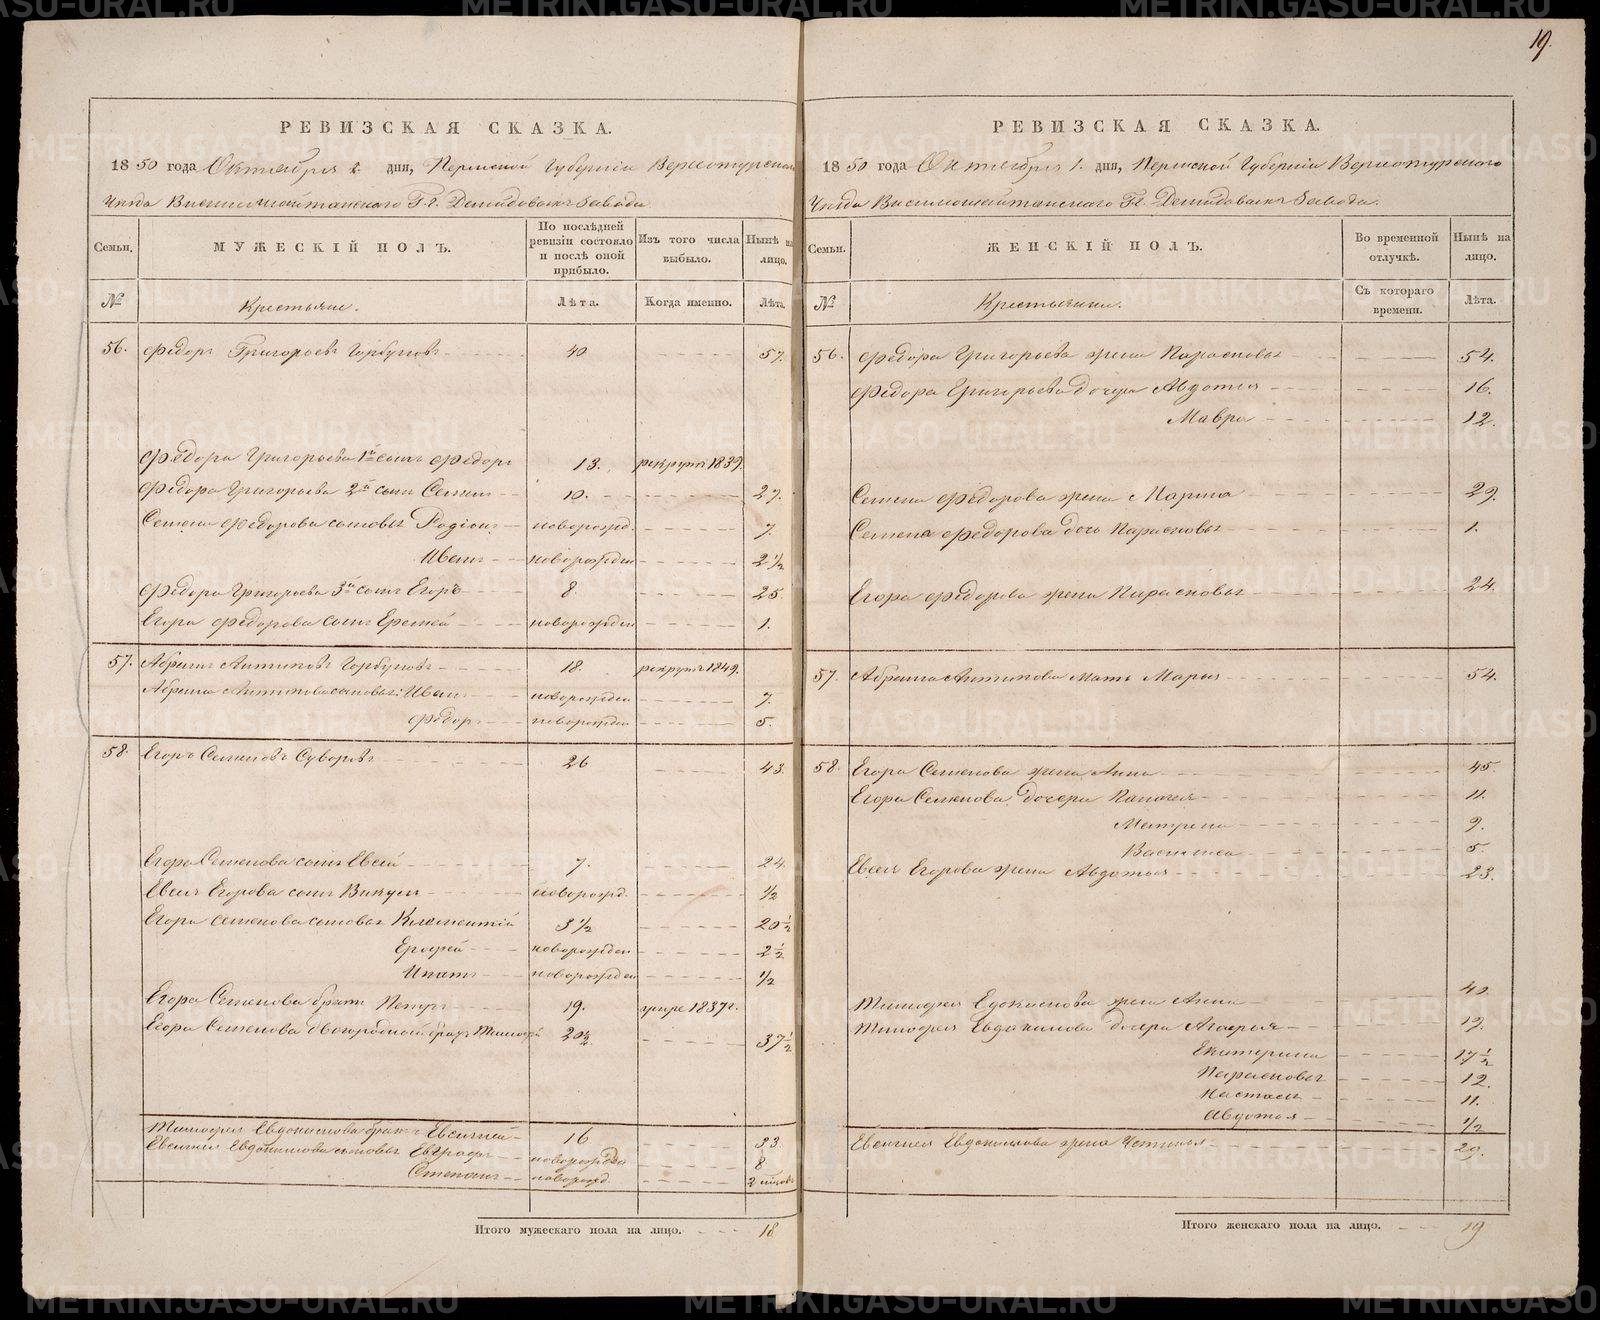 19.
РЕВИЗСКАЯ СКАЗКА.
1850 года Октября 1. дня, Пермской Губерніи Верхотурскаго
Уѣзда Висимошайтанскаго Г.г. Демидовыхъ Завода
Семьи.
МУЖЕСКІЙ ПОЛЪ.
По послѣдней ревизіи состояло и послѣ оной прибыло.
Изъ того числа выбыло.
Нынѣ на лицо.
№
Крестьяне.
Лѣта.
Когда именно.
Лѣта.
56. Федоръ Григорьевъ Горбуновъ 40 57.
Федора Григорьева 1й сынъ Федоръ 13. рекрутъ 1839.
Федора Григорьева 2й сынъ Семенъ 10. 27.
Семена Федорова сыновья Родіонъ новорожд. 7.
Иванъ новорожден 2 1/2
Федора Григорьева 3й сынъ Егоръ 8. 25.
Егора Федорова сынъ Еремей новорожден 1.
57. Абрамъ Антиповъ Горбуновъ 18. рекрутъ 1849.
Абрама Антипова сыновья: Иванъ новорожден 7.
Федоръ новорожден 5.
58. Егоръ Семеновъ Суворовъ 26 43.
Егора Семенова сынъ Евсей 7. 24.
Евсея Егорова сынъ Викулъ новорожд. 1/2
Егора Семенова сыновья Климентій 3 1/2 20 1/2
Ерофей новорожден 2 1/2
Ипатъ новорожден 1/2
Егора Семенова братъ Петръ 19. умре 1837 г.
Егора Семенова двоюродной братъ Тимофей 20 1/2 37 1/2
Тимофея Евдокимова братъ Евсигней 16 33.
Евсигнея Евдокимова сыновья Евграфъ новорожден 8
Степанъ новорожд. 2 мѣсяц
Итого мужескаго пола на лицо. 18
РЕВИЗСКАЯ СКАЗКА.
1850 года Октября 1. дня, Пермской Губерніи Верхотурскаго
Уѣзда Висимошайтанскаго Г.г. Демидовыхъ Завода.
Семьи.
ЖЕНСКІЙ ПОЛЪ.
Во временной отлучкѣ.
Нынѣ на лицо.
№
Крестьянки.
Съ котораго времени.
Лѣта.
56. Федора Григорьева жена Парасковья 54.
Федора Григорьева дочери Авдотья 16.
Мавра 12.
Семена Федорова жена Марина 29.
Семена Федорова дочь Парасковья 1.
Егора Федорова жена Парасковья 24.
57. Абрама Антипова мать Марья 54.
58. Егора Семенова жена Анна 45.
Егора Семенова дочери Палагея 11.
Матрена 9.
Василиса 5.
Евсея Егорова жена Авдотья 23.
Тимофея Евдокимова жена Анна 40.
Тимофея Евдокимова дочери Агафья 19.
Екатерина 17 1/2
Парасковья 12.
Настасья 11.
Авдотья 1/2
Евсигнея Евдокимова жена Устинья 29.
Итого женскаго пола на лицо. 19
METRIKI.GASO-URAL.RU